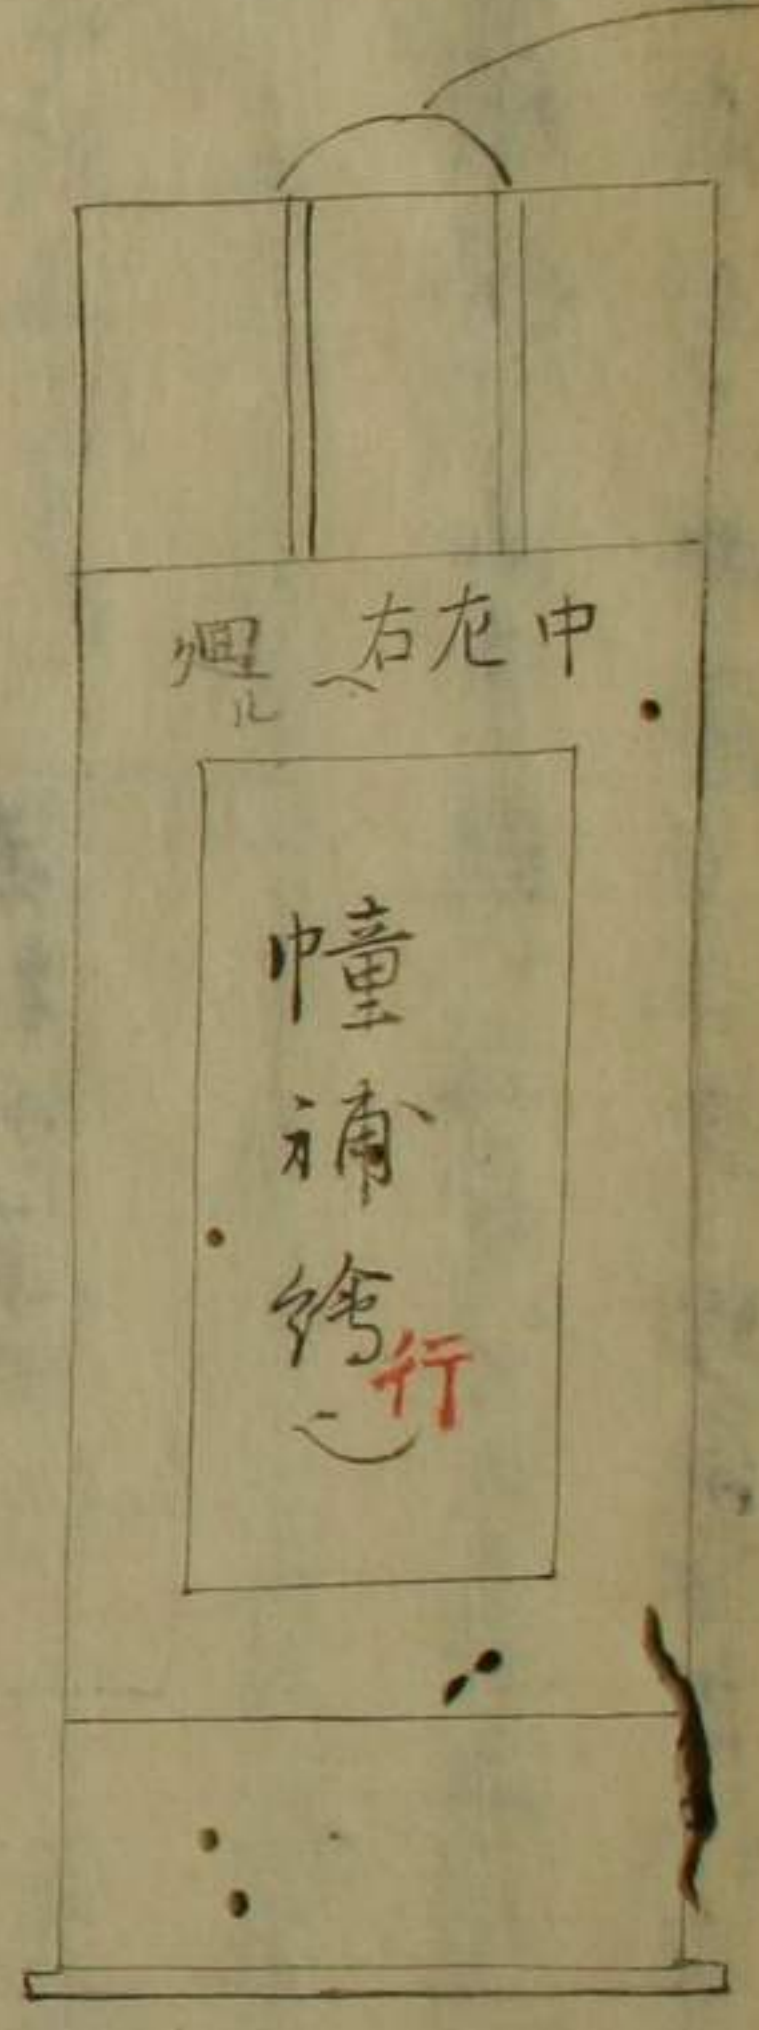 中左右へ廻ル
幢補繪
行